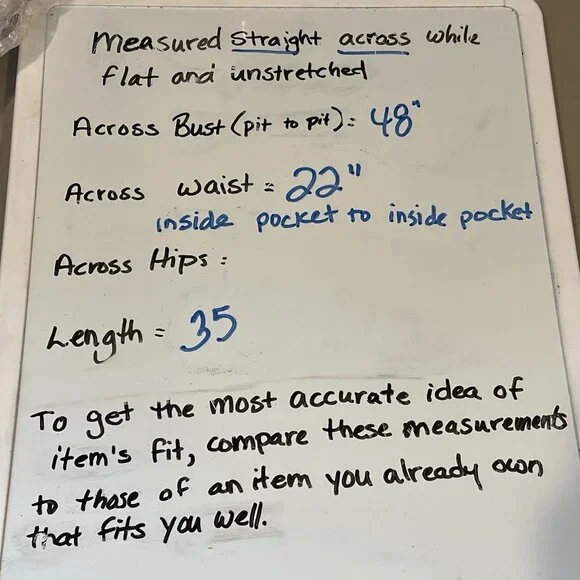 Measured Straight across while
flat and unstretched
Across Bust (pit to pit): 48"
Across waist = 22"
inside pocket to inside pocket
Across Hips :
Length = 35
To get the most accurate idea of
item's fit, compare these measurements
to those of an item you already own
that fits you well.